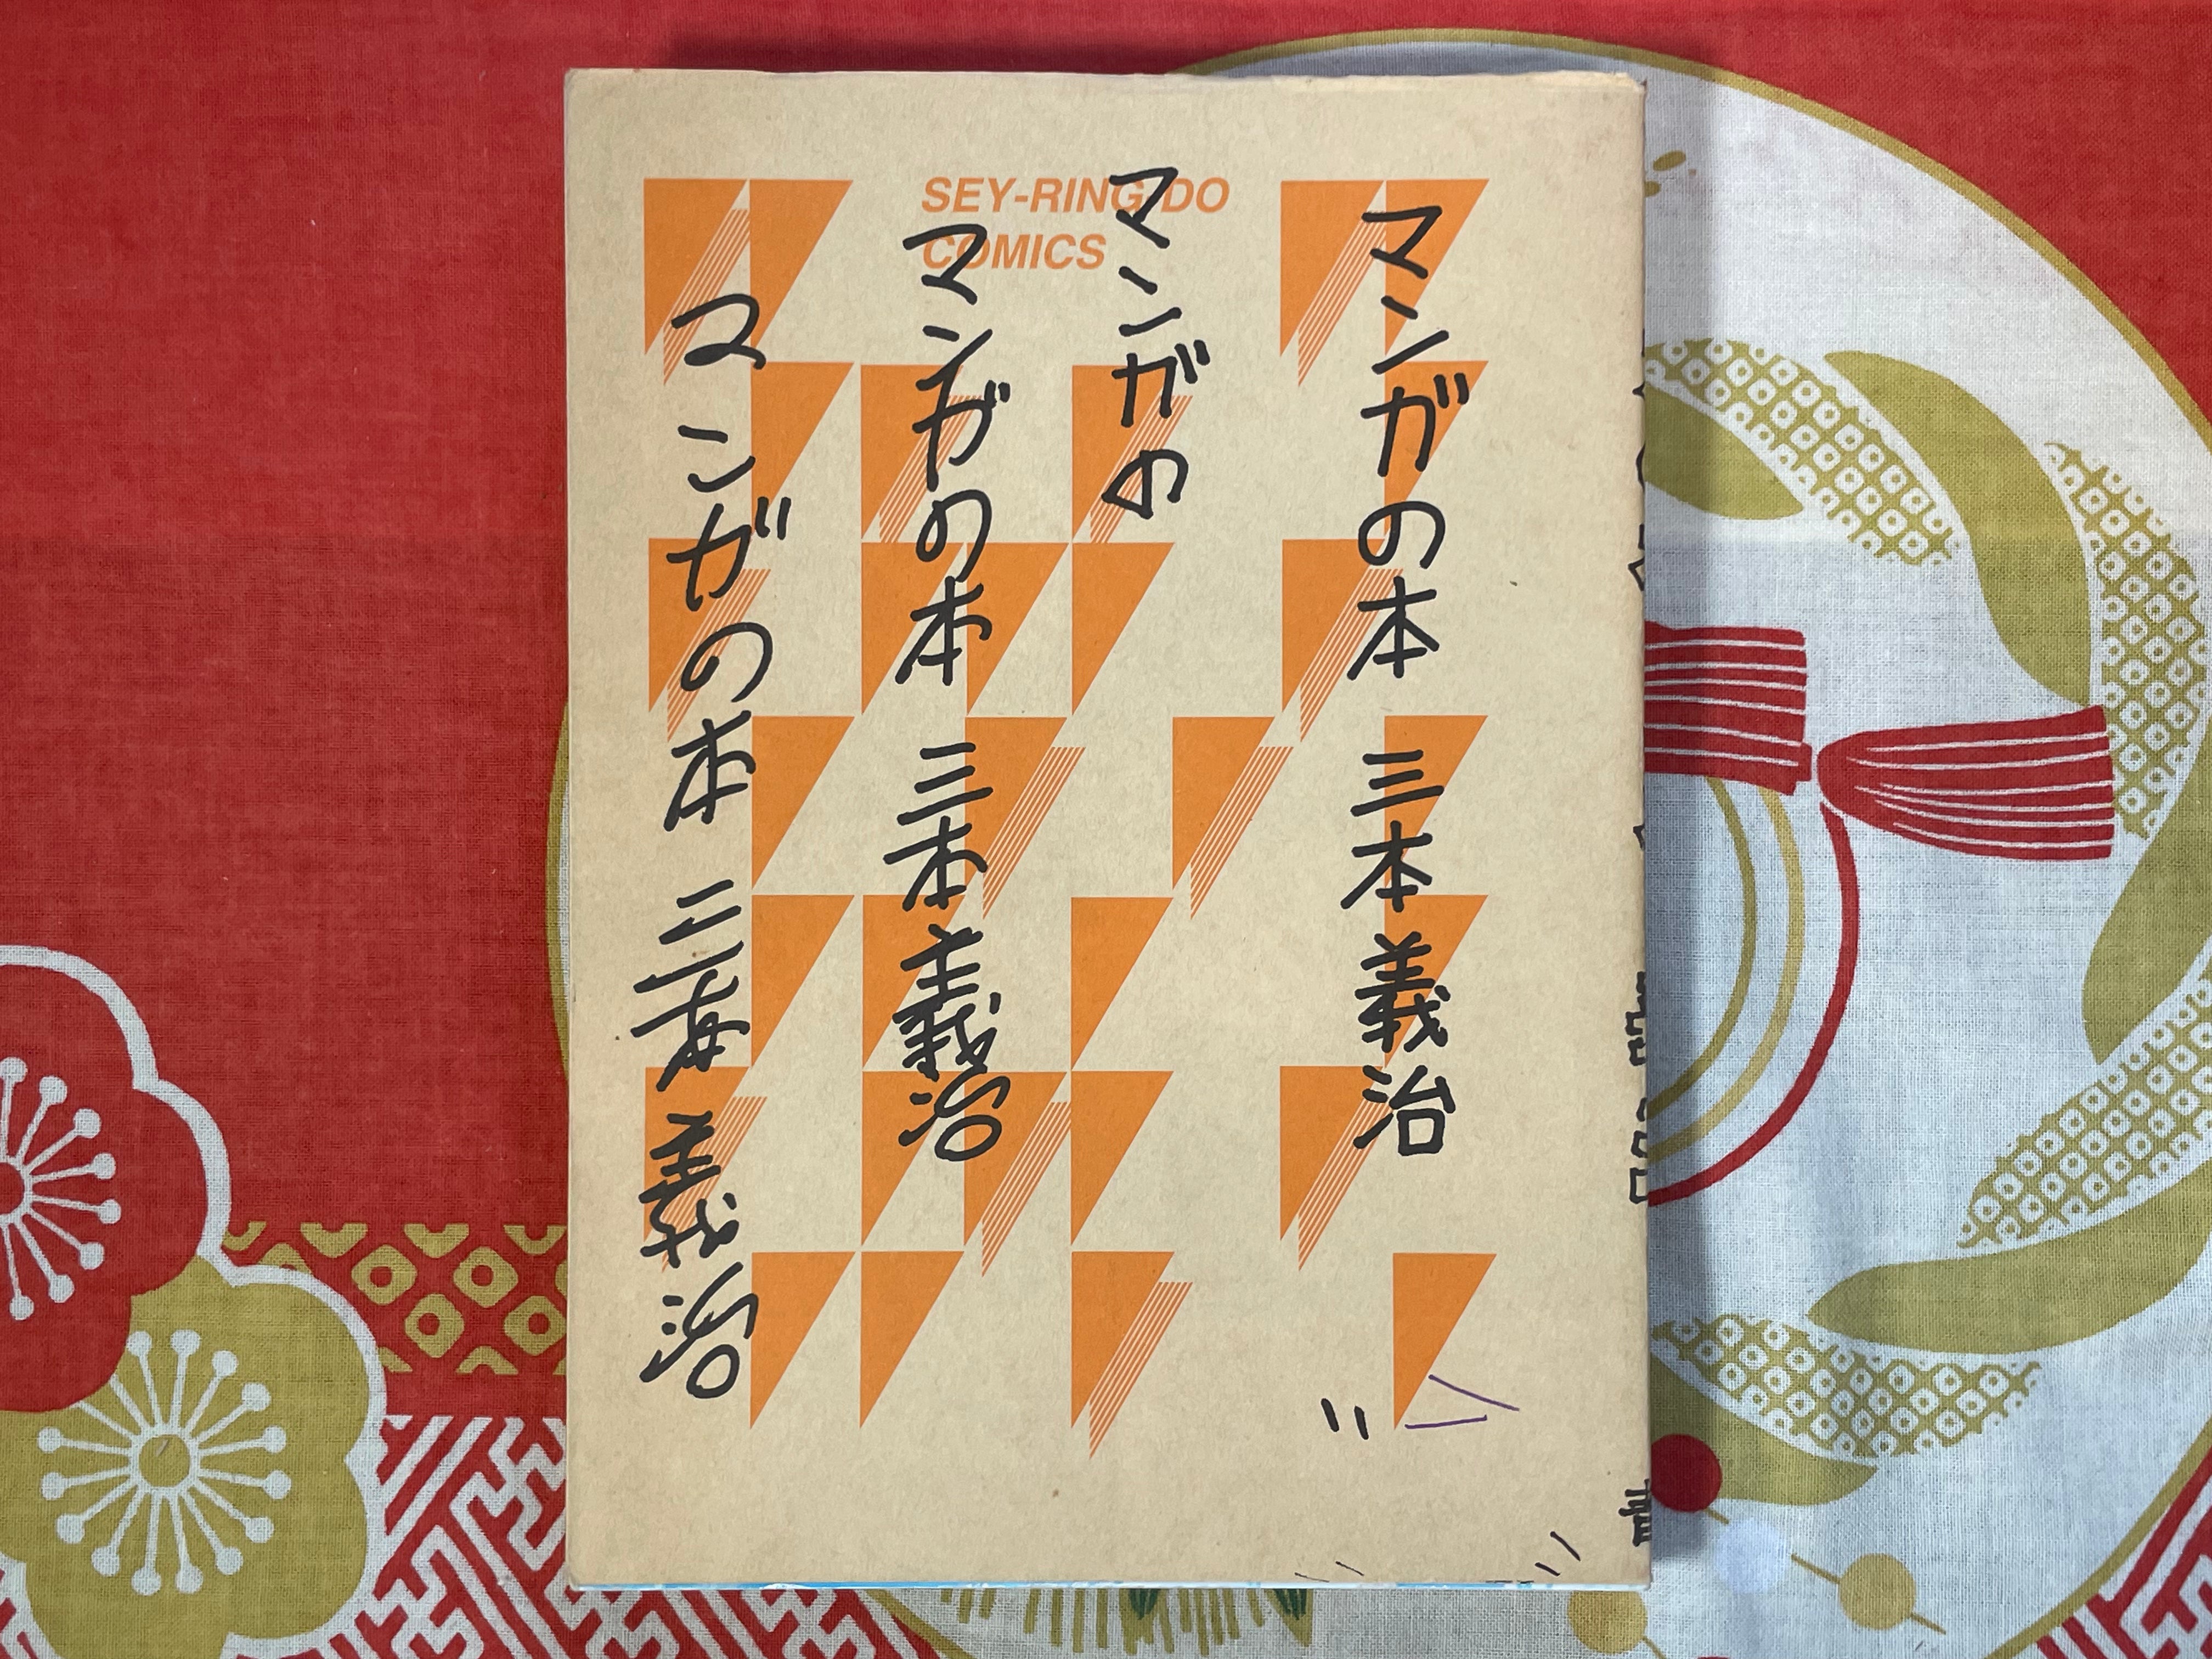 SEY-RING DO
COMICS
マンガの本 三本義治
マンガの
マンガの本 三本義治
マンガの本 三本義治